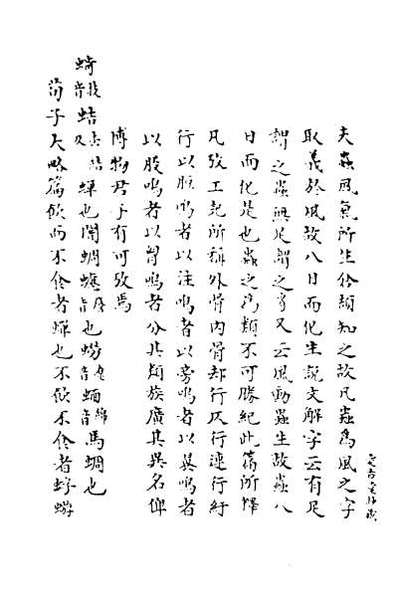 夫蟲風氣所生倉頡知之故凡蟲爲風之字
取義於風故八日而化生說文解字云有足
謂之蟲無足謂之豸又云風動蟲生故蟲八
日而化是也蟲之爲類不可勝紀此篇所釋
凡攷工記所稱外骨內骨却行仄行連行紆
行以脰鳴者以注鳴者以旁鳴者以翼鳴者
以股鳴者以胷鳴者分其類族廣其異名俾
博物君子有可攷焉
蛣蟬也闇蜩也蟧蝒馬蜩也
荀子大略篇飲而不食者蟬也不飲不食者蜉蝣